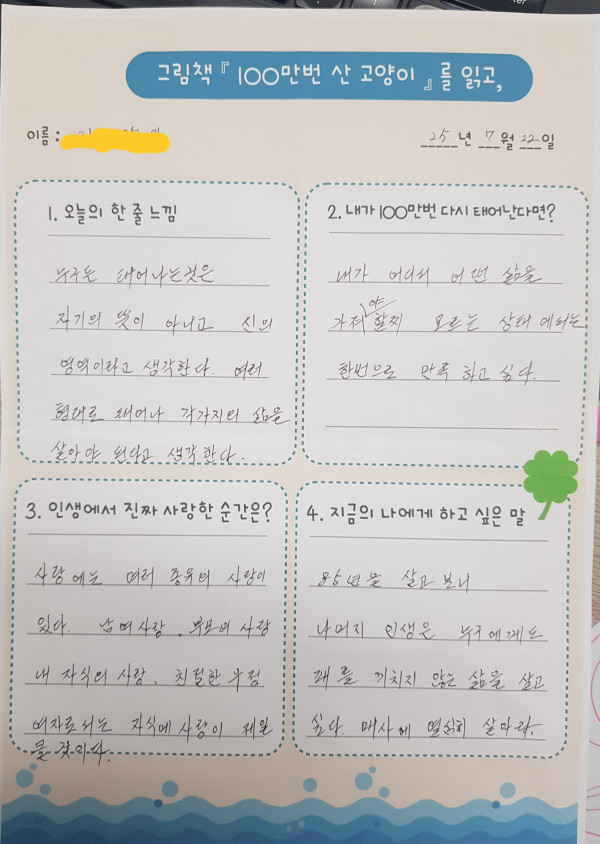 그림책 『 100만번 산 고양이 』를 읽고,
이름 :
25년 7월 22일
1. 오늘의 한 줄 느낌
누구든 태어나는것은
자기의 뜻이 아니고 신의
영역이라고 생각한다. 여러
형태로 태어나 각가지의 삶을
살아야 된다고 생각한다.
2. 내가 100만번 다시 태어난다면?
내가 어디의 어떤 삶을
가져야 할찌 모르는 상태에서는
한번으로 만족 하고 싶다.
3. 인생에서 진짜 사랑한 순간은?
사랑에는 여러 종류의 사랑이
있다. 남여사랑. 부모의 사랑
내 자식의 사랑, 친절한 우정
여자로서는 자식에 사랑이 제일
클 것이다.
4. 지금의 나에게 하고 싶은 말
85년을 살고 보니
나머지 인생은 누구에게도
폐를 끼치지 않는 삶을 살고
싶다. 매사에 열심히 살아라.